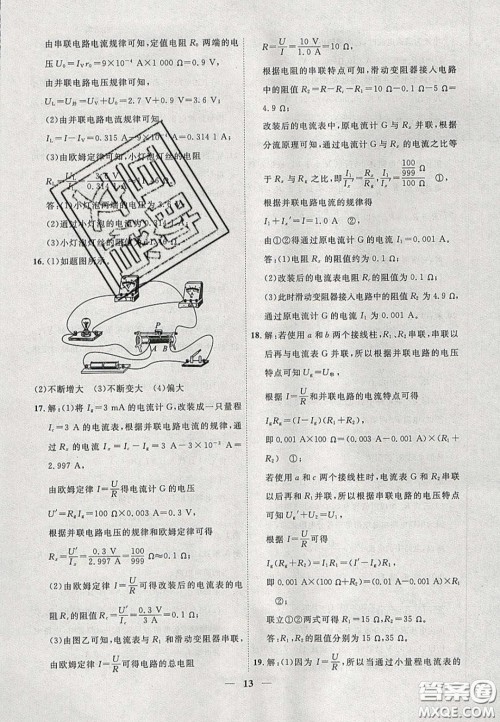 由串联电路电流规律可知,定值电阻 R₀ 两端的电
压 U₀=I_V r₀=9×10⁻⁴ A×1 000 Ω=0.9 V,
由并联电路电压规律可知,
U_L=U_并=U_V+U₀=2.7 V+0.9 V=3.6 V;
(2)由并联电路电流规律可知,
I_L=I−I_V=0.315 A−9×10⁻⁴ A=0.314 1 A;
(3)由欧姆定律可知,小灯泡灯丝的电阻
答:(1)小灯泡两端的电压为3.6
(2)通过小灯泡的电流为0.314 1
(3)小灯泡灯丝的电阻
16.(1)如题图所示.
P
A B
(2)不断增大 (3)不断变大 (4)偏大
17.解:(1)将 I_g=3 mA 的电流计 G,改装成一只量程
I_c=3 A 的电流表,根据并联电路电流的规律,通
过 R_x 的电流 I_x=I_c−I_g=3 A−3×10⁻³ A=
2.997 A,
由欧姆定律 I=U/R可得电流计 G 的电压
U'=I_gR_g=3×10⁻³ A×100 Ω=0.3 V,
根据并联电路电压的规律和欧姆定律可得
R_x=U'/I_x=0.3 V/2.997 A≈0.1 Ω;
(2)由欧姆定律 I=U/R可得改装后的电流表的电
阻 R_c的阻值 R_c=U'/I_c=0.3 V/3 A=0.1 Ω;
(3)由图乙可知,电流表和滑动变阻器串联,
由欧姆定律 I=U/R可得电路的总电阻
R=U/I=10 V/1.0 A=10 Ω,
根据电阻的串联特点可知,滑动变阻器接入电路
中的阻值 R₂=R−R_c−R₁=10 Ω−0.1 Ω−5 Ω=
4.9 Ω;
改装后的电流表中,原电流计 G 与 R_x 并联,根据
分流原理可知,通过原电流计 G 与 R_x 的电流之比等
①,
根据并联电路的电流特点可得
I₁+I_x'=I=1.0 A ②,
由①②可得通过原电流计 G 的电流 I₁=0.001 A.
答:(1)需要并联的电阻 R_x
(2)改装后的电流表的阻值 R_c 为 0.1 Ω;
(3)此时滑动变阻器接入电路中的阻值 R₂ 为 4.9 Ω,
通过原电流计 G 的电流 I₁ 为 0.001 A.
18.解:若使用 a 和 b 两个接线柱,R₁、R₂ 串联,串联以
后再与电流表并联,所以根据并联电路的电压特
点可知 U_g=U_串,
根据 I=U/R和并联电路的电流特点可得
I_gR_g=(I−I_g)(R₁+R₂),
即:0.001 A×100 Ω=(0.003 A−0.001 A)×(R₁+R₂)
①
若使用 a 和 c 两个接线柱时,电流表G和 R₂ 串联
以后再和 R₁ 并联,所以根据并联电路的电压特点
可知 U_g'+U₂'=U₁,
根据 I=U/R可得
I_g(R_g+R₂)=I₁R₁=(I−I_g)R₁,
即:0.001 A×(100 Ω+R₂)=(0.01 A−0.001 A)×R₁
②
联立①②两式可得:R₁=15 Ω,R₂=35 Ω.
答:R₁ 的阻值是 15 Ω,R₂ 的阻值是 35 Ω.
19.解:(1)因为 I=U/R,所以当通过小量程电流表的
— 13 —
答案圈
MXQE.COM